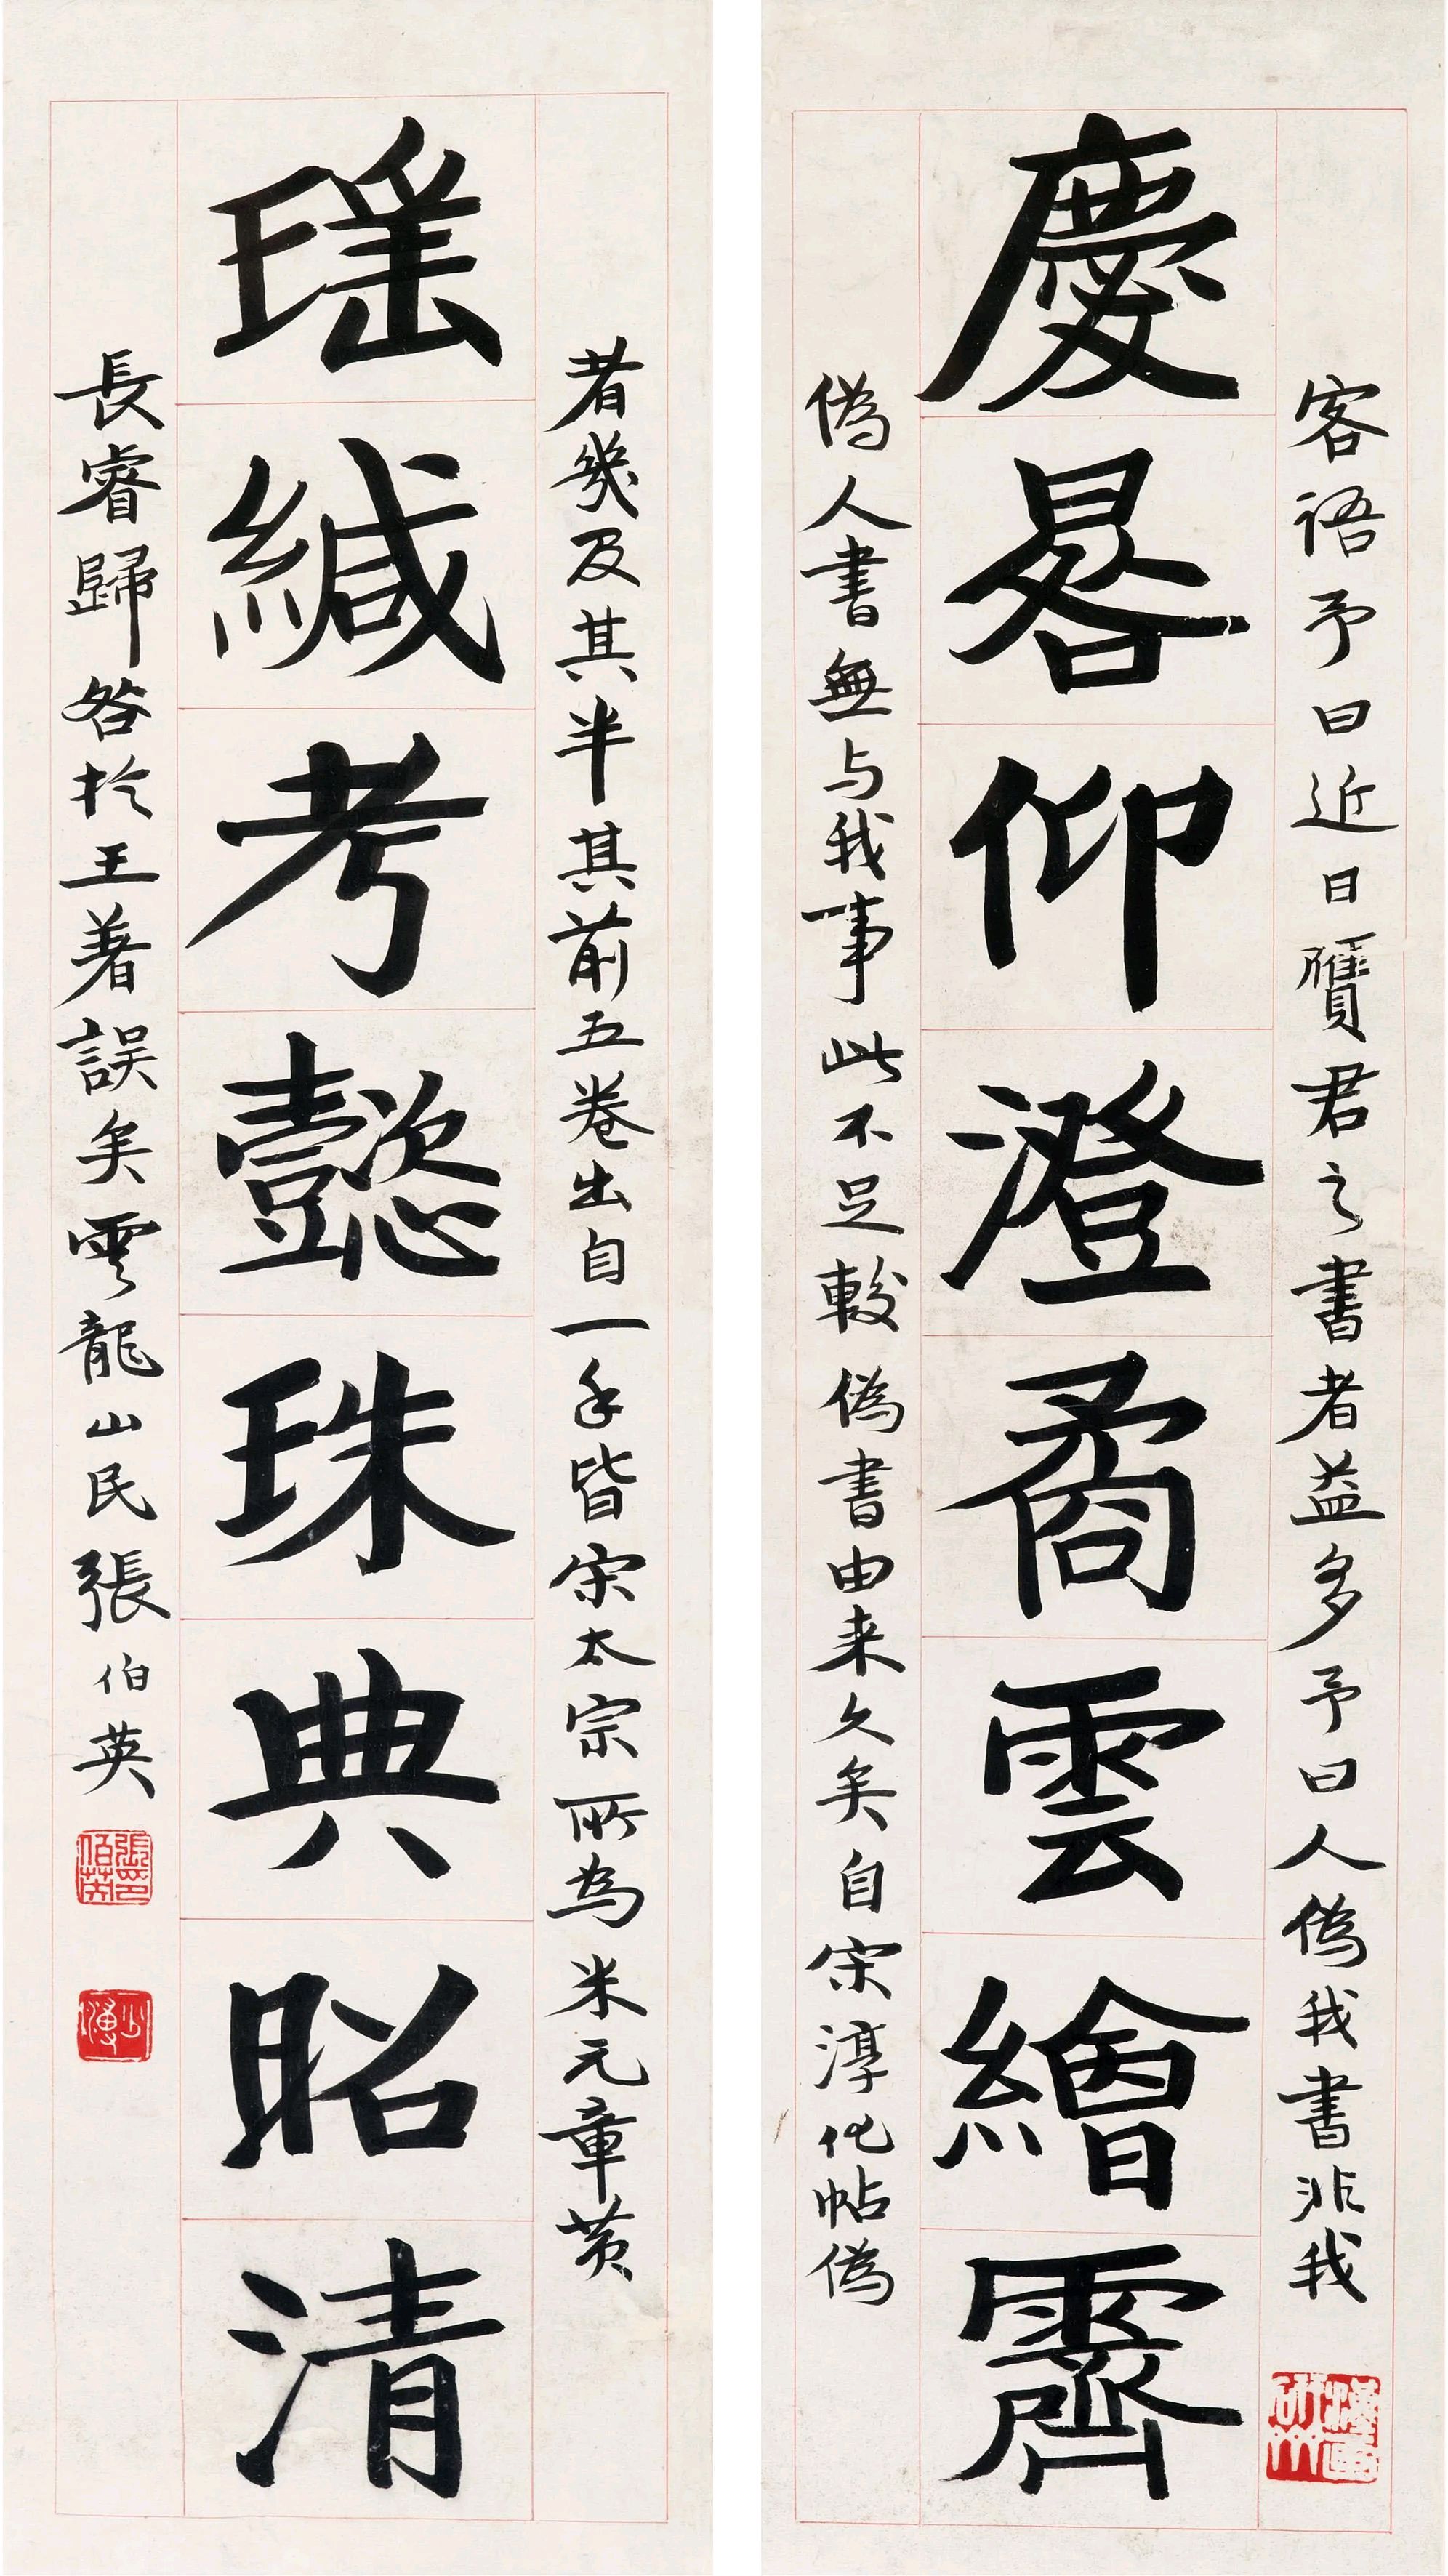 客語予曰近日贗君之書者益多予曰人偽我書非我
慶晷仰澄矞雲繪霽
偽人書無与我事此不足較偽書由来久矣自宋淳化帖偽
者幾及其半其前五卷出自一手皆宋太宗所為米元章黄
瑶緘考懿珠典昭清
長睿歸咎於王著誤矣雲龍山民張伯英
張伯英印
少溥